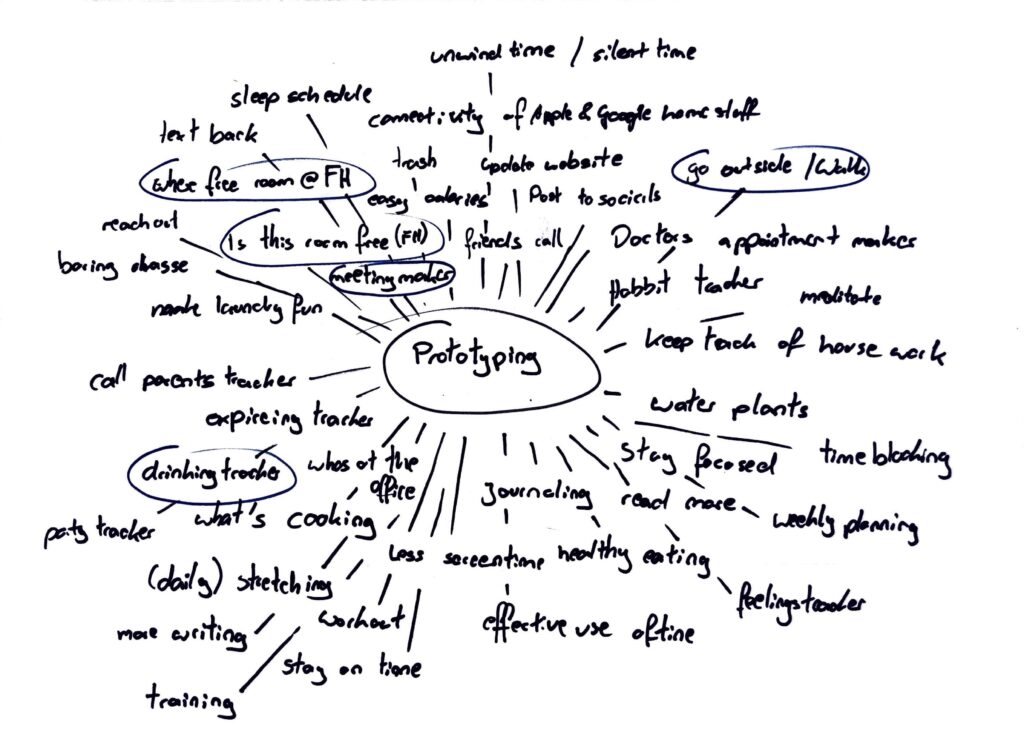 unwind time / silent time
sleep schedule
connectivity of Apple & Google home stuff
text back
trash
update website
go outside / Walk
where free room @ FH
easy calories
Post to socials
reach out
Is this room free (FH)
friends call
Doctors appointment maker
boring
meeting maker
Habbit tracker
meditate
make laundry fun
Prototyping
keep track of house work
call parents tracker
water plants
expireing tracker
stay focused
time blocking
drinking tracker
whos at the office
journaling
read more
party tracker
what's cooking
weekly planning
less screentime
healthy eating
(daily) stretching
feelingstracker
more writing
workout
effective use of time
stay on time
training